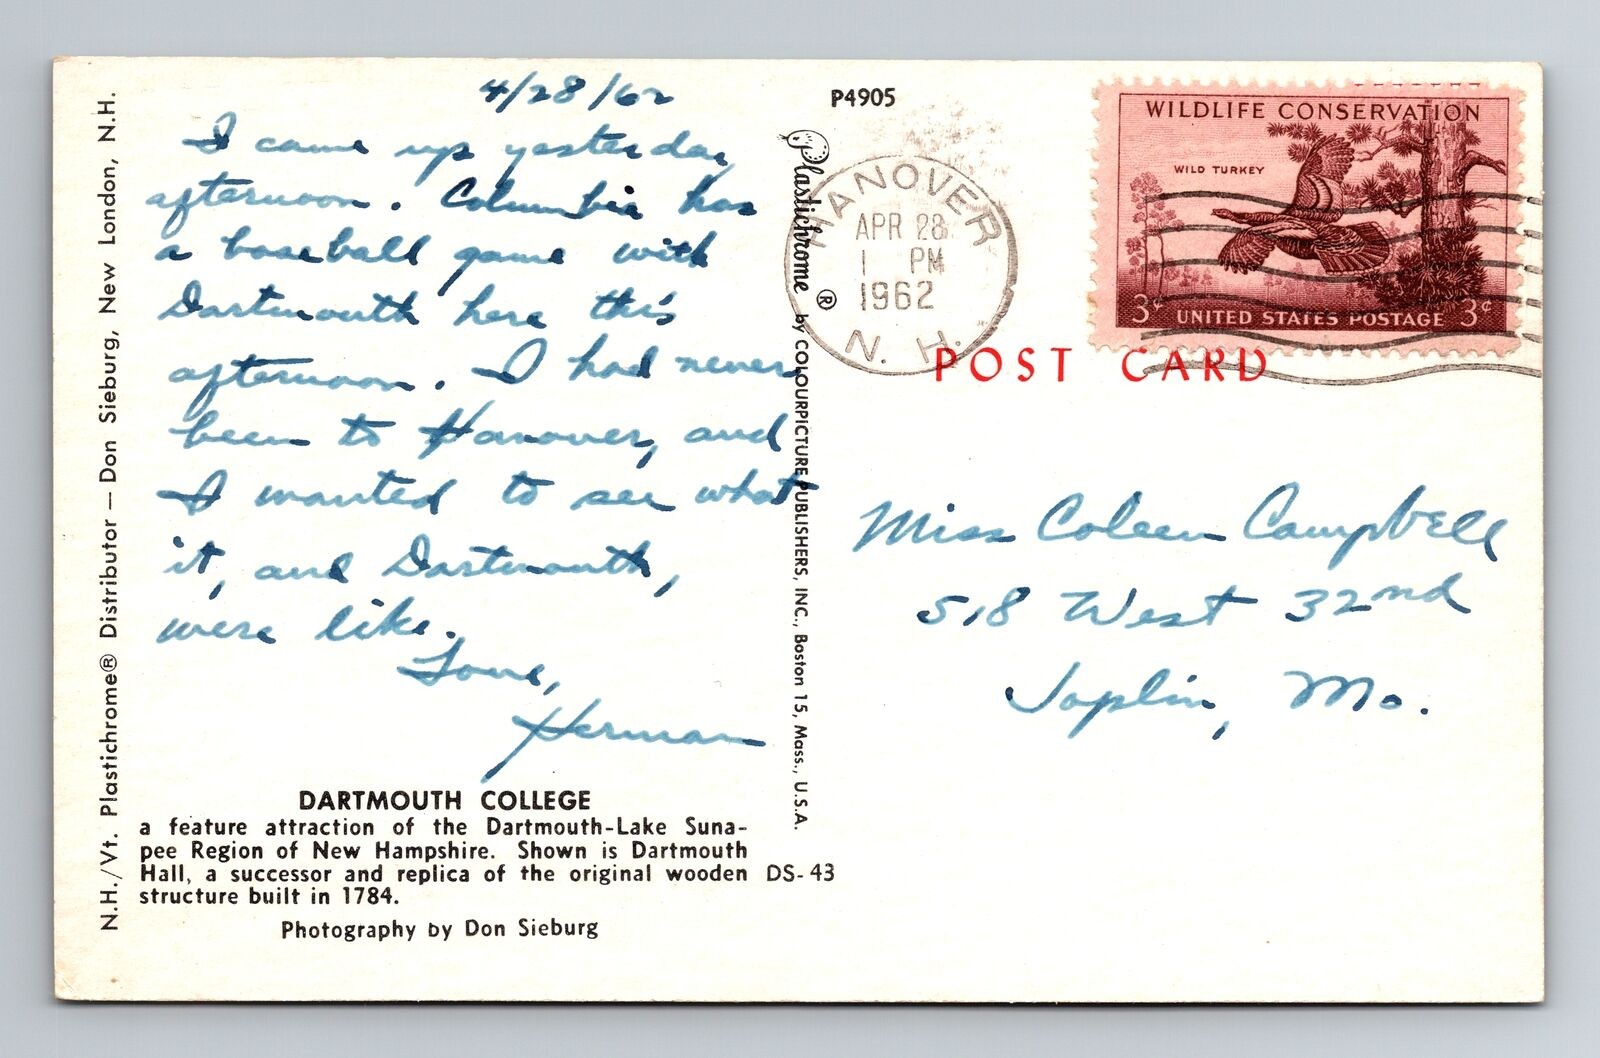 4/28/62
I came up yesterday
afternoon. Columbia has
a baseball game with
Dartmouth here this
afternoon. I had never
been to Hanover, and
I wanted to see what
it, and Dartmouth,
were like.
Love,
Herman
DARTMOUTH COLLEGE
a feature attraction of the Dartmouth-Lake Suna-
pee Region of New Hampshire. Shown is Dartmouth
Hall, a successor and replica of the original wooden
structure built in 1784.
Photography by Don Sieburg
DS-43
N.H./Vt. Plastichrome® Distributor — Don Sieburg, New London, N.H.
P4905
Plastichrome ® by COLOURPICTURE PUBLISHERS, INC., Boston 15, Mass., U.S.A.
HANOVER
APR 28
1 PM
1962
N. H.
WILDLIFE CONSERVATION
WILD TURKEY
3¢ UNITED STATES POSTAGE 3¢
POST CARD
Miss Coleen Campbell
518 West 32nd
Joplin, Mo.